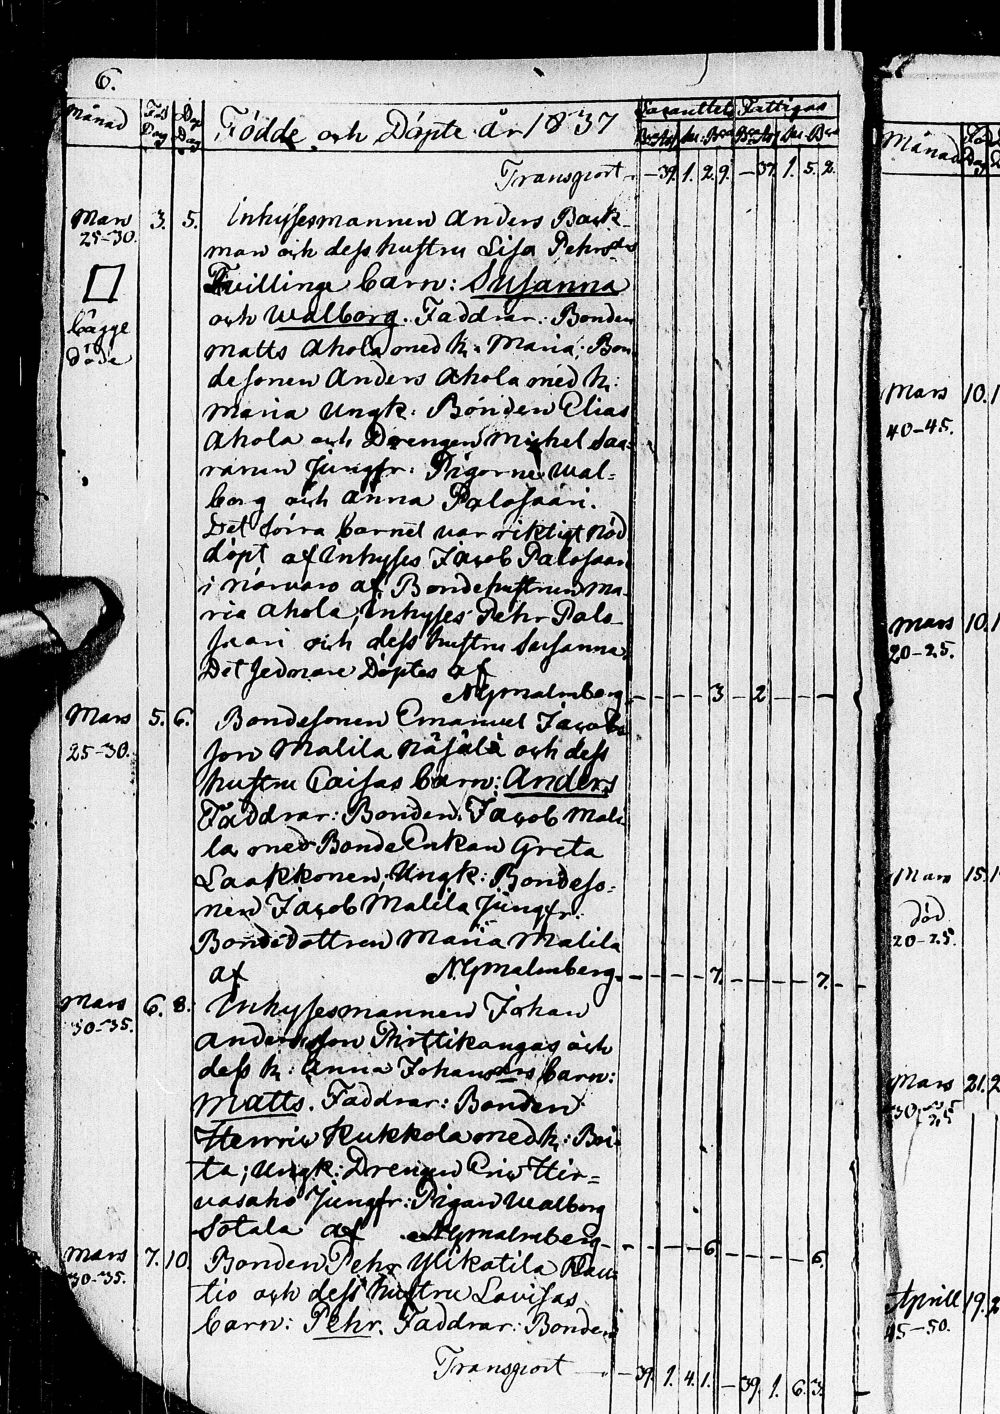 6.
Månad Föd Dag Döp Dag Födde och Döpte år 1837 Fattigas
Transport - 39. 1. 2. 9. - 37. 1. 5. 2.
Mars 3. 5. Inhysesmannen Anders Back-
25-30. man och dess hustru Lisa Pehrsdr
Tvillinge barn: Susanna
bägge och Walborg. Faddrar: Bonden
döde Matts Ahola med h: Maria, Bon-
desonen Anders Ahola med h:
Maria Ungk: Bonden Elias
Ahola och Drengen Michel Saa-
ranen Jungfr: Pigorne Wal-
borg och Anna Palosaari.
Det förra barnet var riktigt nöd-
döpt af Inhyses Jacob Palosaari
i närvaro af Bondehustrun Ma-
ria Ahola, Inhyses Pehr Palo-
saari och dess hustru Susanna.
Det sednare Döptes af
NGMalmberg - - - - 3 - 2 - - -
Mars 5. 6. Bondesonen Emanuel Jacobs-
25-30. son Malila Näsälä och dess
hustru Caisas barn: Anders
Faddrar: Bonden Jacob Mali-
la med BondeEnkan Greta
Laakkonen, Ungk: Bondeso-
nen Jacob Malila Jungfr:
Bondedottren Maria Malila
af NGMalmberg. - - - - 7. - - - - 7.
Mars 6. 8. Inhysesmannen Johan
30-35. Andersson Pirttikangas och
dess h: Anna Johansdrs barn:
Matts. Faddrar: Bonden
Henric Kukkola med h: Bri-
ta; Ungk: Drengen Eric Hir-
vasaho Jungfr: Pigan Walborg
Sotala af NGMalmberg - - - - 6. - - - - 6.
Mars 7. 10. Bonden Pehr Ylikotila Rau-
30-35. tio och dess hustru Lovisas
barn: Pehr. Faddrar: Bonden
Transport - 39. 1. 4. 1. - 39. 1. 6. 3.
7
Månad
Mars 10.
40-45.
Mars 10.
20-25.
Mars 15.
död
20-25.
Mars 21.
Aprill 19.
45-50.